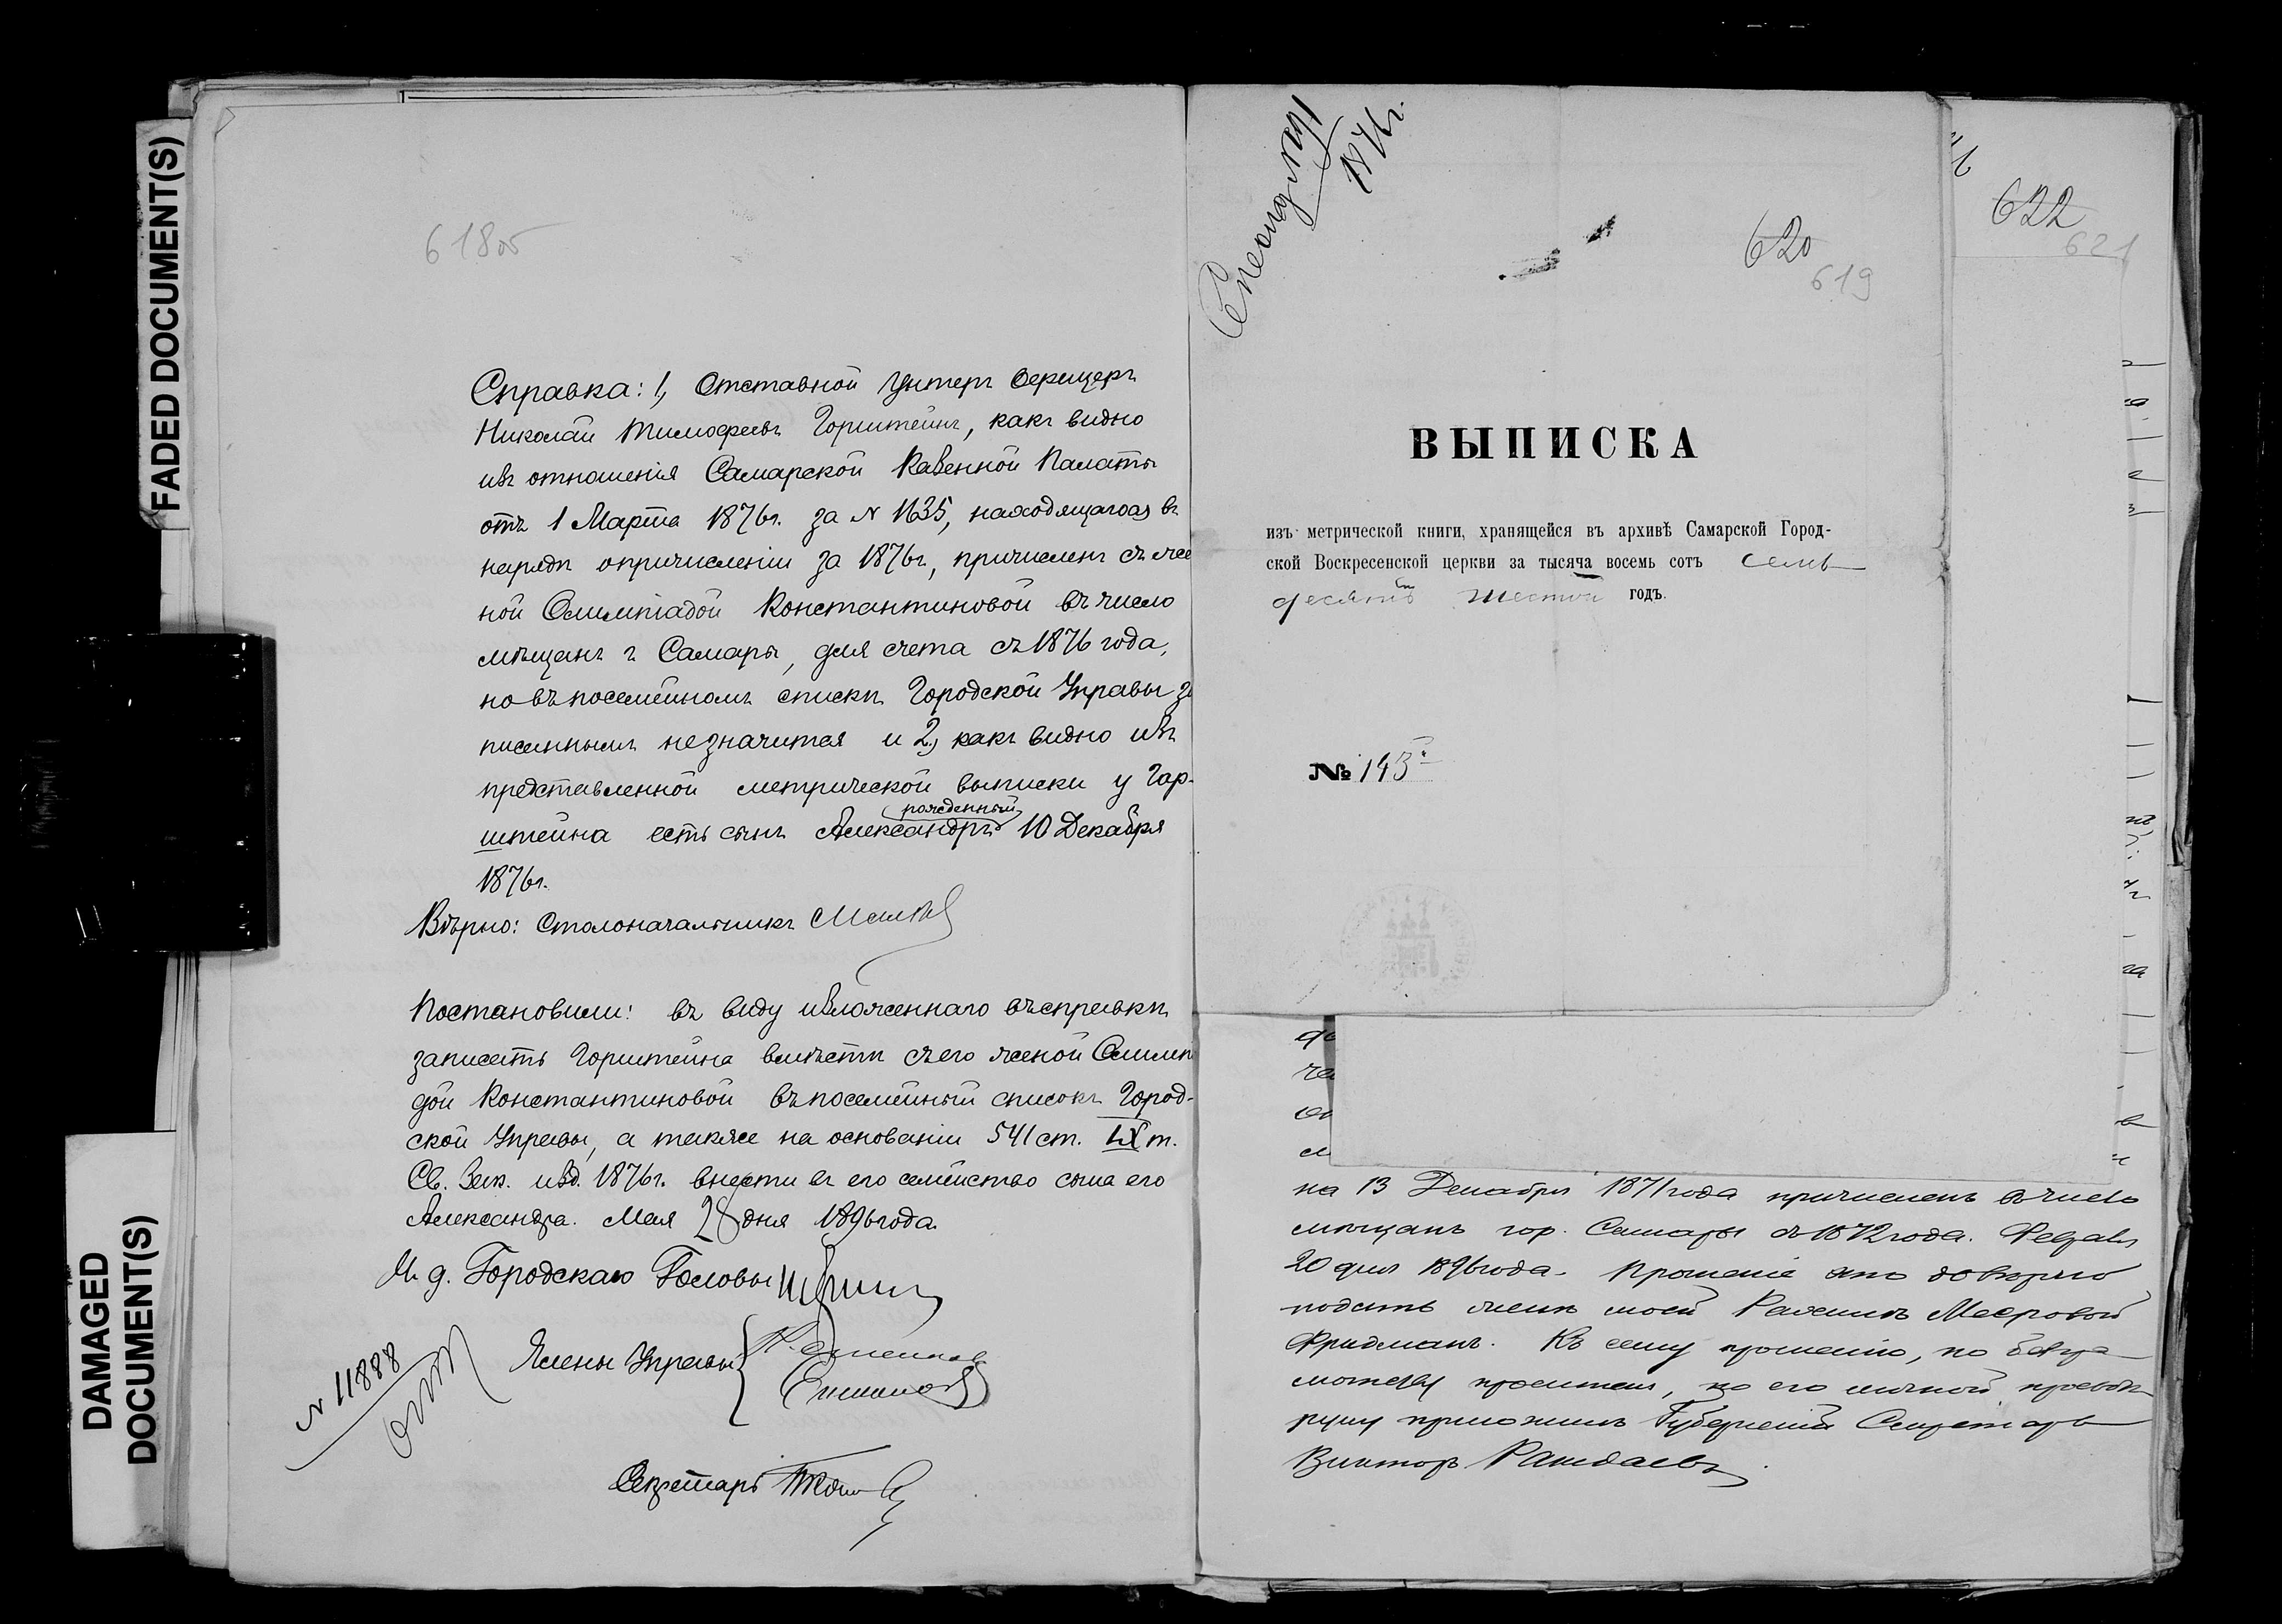 FADED DOCUMENT(S)
DAMAGED
DOCUMENT(S)
618об
Справка: 1, Отставной Унтеръ Офицеръ
Николай Тимофеевъ Горштейнъ, какъ видно
изъ отношенія Самарской Казенной Палаты
отъ 1 Марта 1876г. за № 1635, находящагося въ
нарядѣ опричисленіи за 1876г, причисленъ съ же
ной Олимпіадой Константиновой въ число
мѣщанъ г Самары, для счета съ 1876 года,
но въ посемейномъ спискѣ Городской Управы за
писаннымъ незначится и 2, какъ видно изъ
представленной метрической выписки у Гор-
рожденный
штейна есть сынъ Александръ 10 Декабря
1876г.
Вѣрно: Столоначальникъ
Постановили: въ виду изложеннаго въ справкѣ
записать Горштейна вмѣстѣ съ его женой Олимпі
дой Константиновой въ посемейный списокъ Город-
ской Управы, а также на основаніи 541 ст. IX т.
Св. Зак. изд. 1876г. внести въ его семейство сына его
Александра. Мая 28 дня 1896 года.
И. д. Городскаго Головы
Члены Управы
№ 11888
Секретарь
1876г.
620
619
ВЫПИСКА
изъ метрической книги, хранящейся въ архивѣ Самарской Город-
ской Воскресенской церкви за тысяча восемь сотъ семь
десятъ шестой годъ.
№ 143
622
621
на 13 Декабря 1871 года причисленъ въ число
мѣщанъ гор. Самары съ 1872 года. Февраля
20 дня 1896 года. Прошеніе это довѣряю
подать женѣ моей Мееровой
Фридманъ. Къ сему прошенію, по безгра
мотству просителя, по его личной прозьбѣ
руку приложилъ Губернскій Секретарь
Викторъ